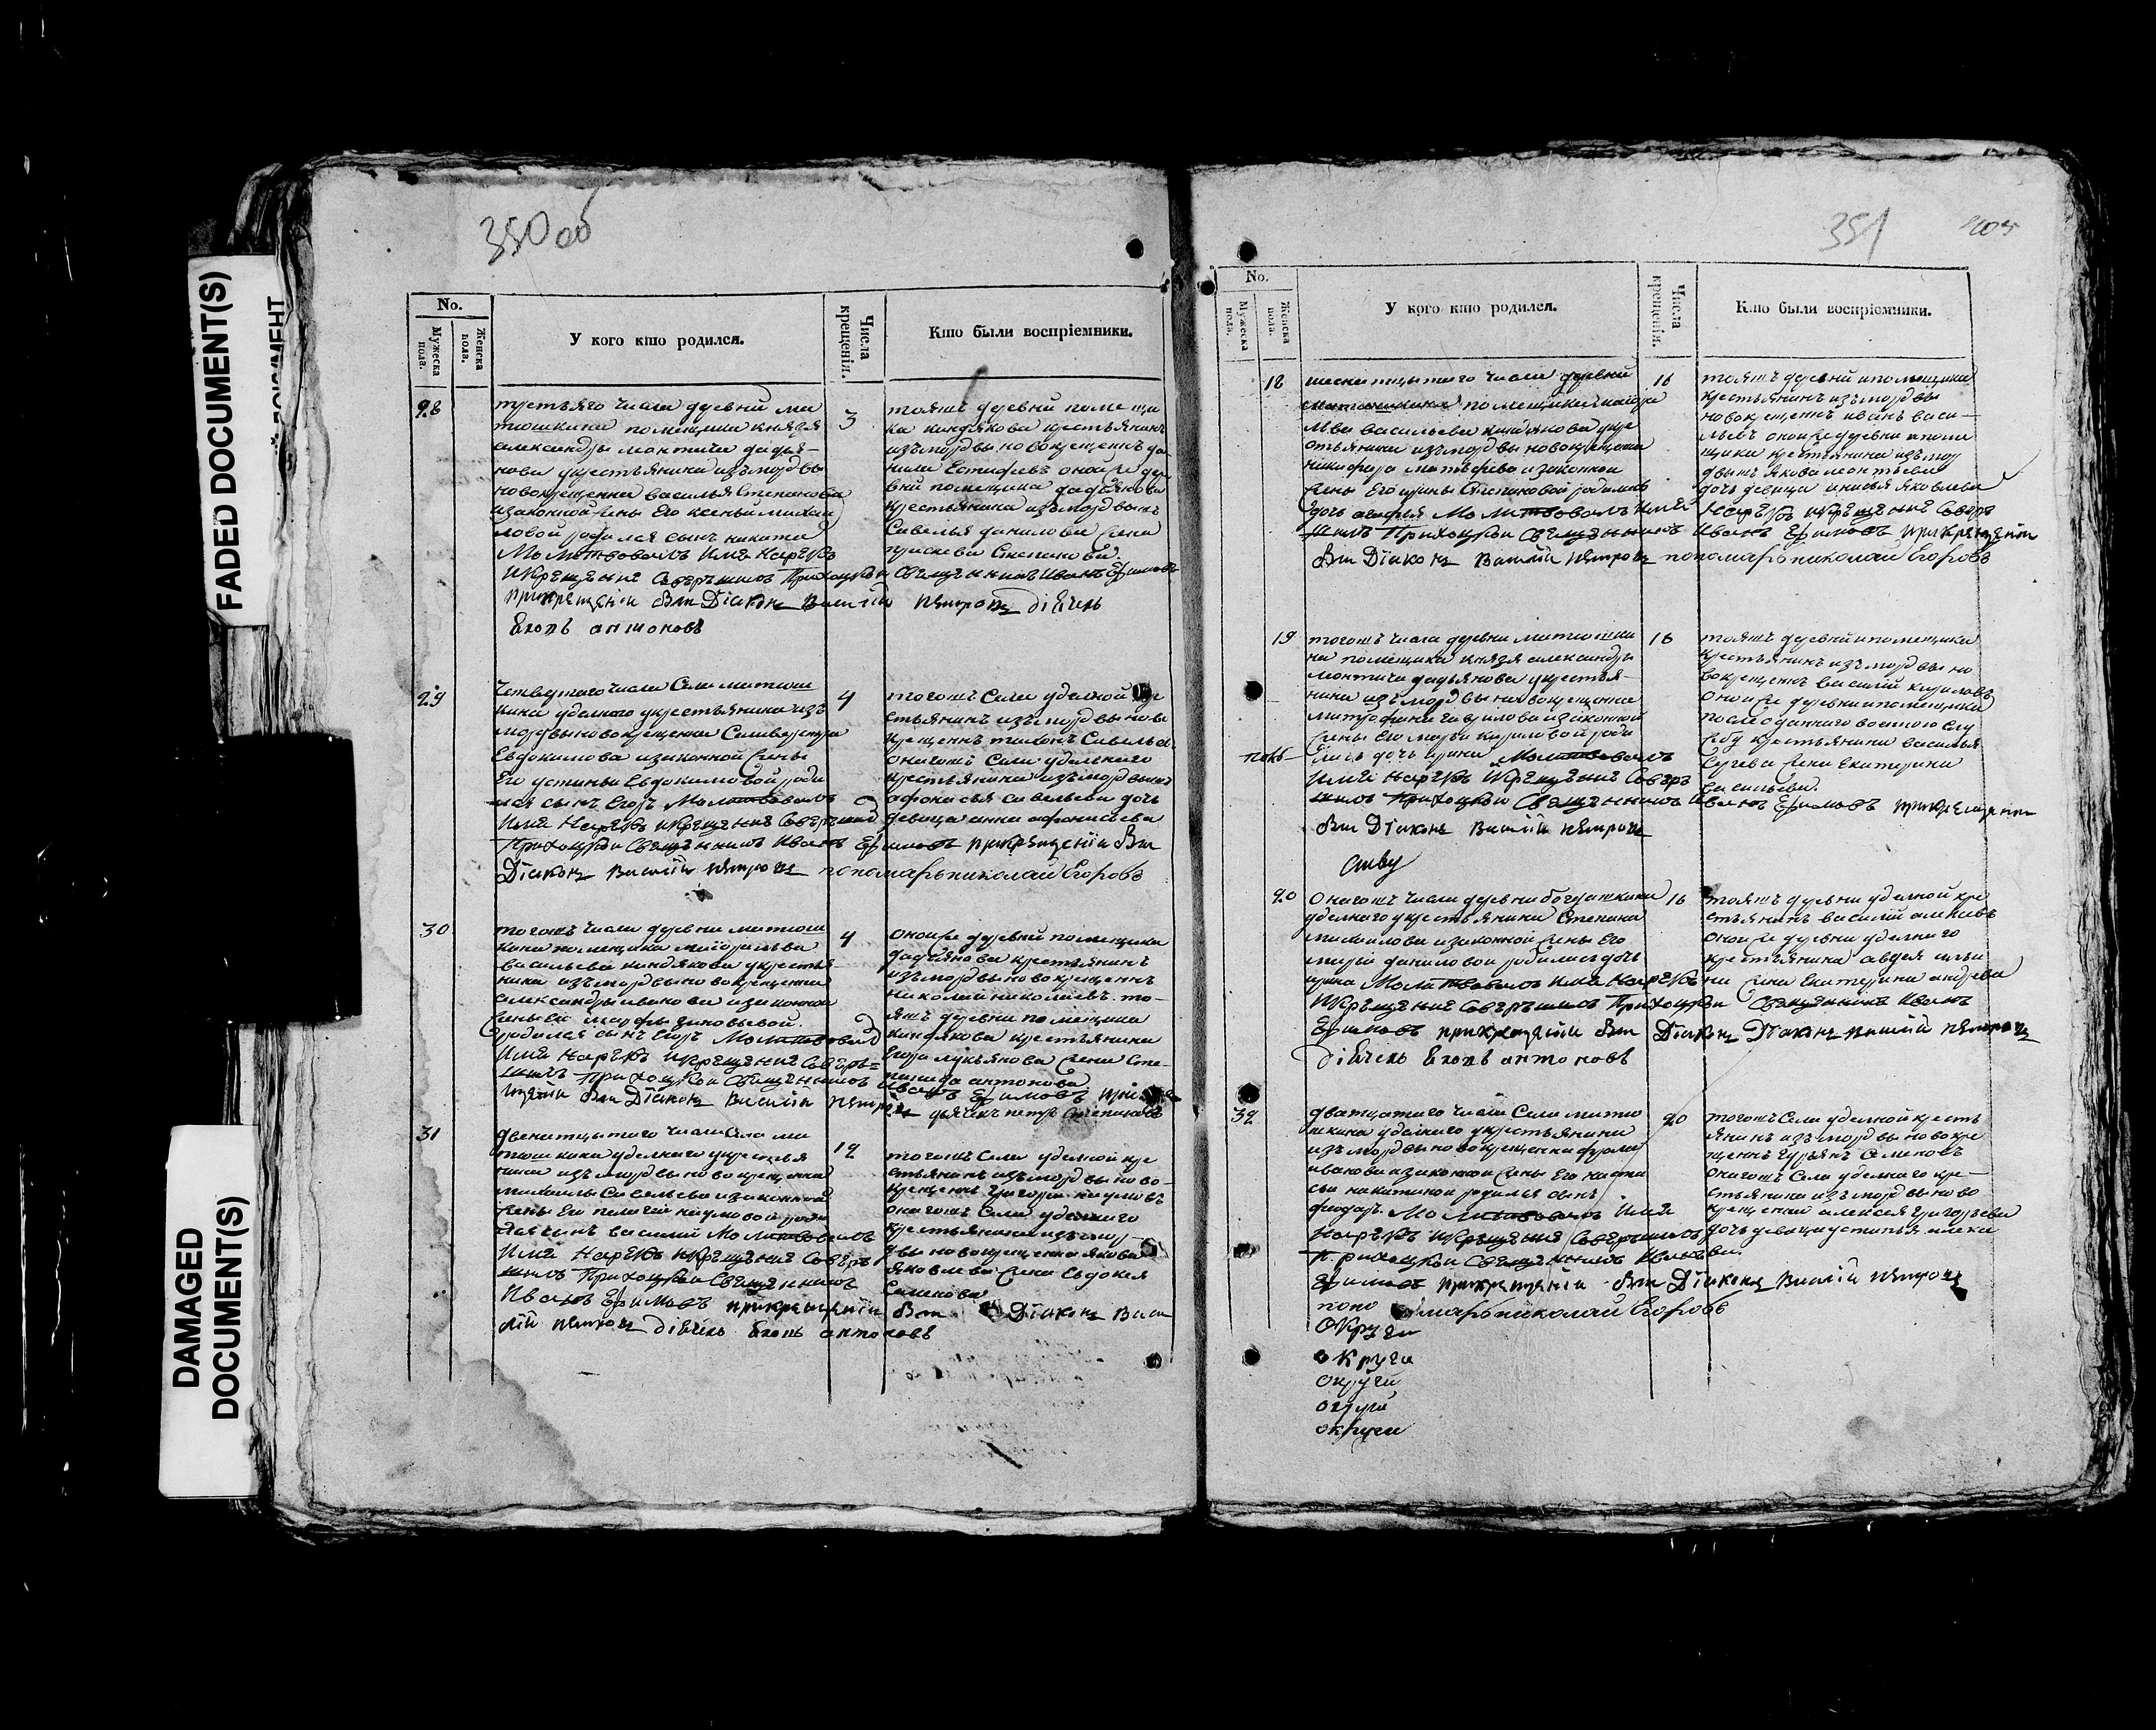 FADED DOCUMENT(S)
DAMAGED
DOCUMENT(S)
350 об
No.
Мужеска пола.
Женска пола.
У кого кто родился.
Числа крещенія.
Кто были воспріемники.
28
третьяго числа деревни ма
тюшкина помещика князя
александры
крестьянина изъ мордвы
новокрещенна василья Степанова
изаконной жены Его ксеньи михаи
ловой родился сынъ никита
Молитвовалъ Имя Нарѣкъ
Икрѣщѣніе Совѣршилъ Приходцкои Свѣщѣнникъ Иванъ Ефимовъ
прикрещеніи Были Діаконъ Василій Петровъ діячекъ
Егоръ антоновъ
3
тояжъ деревни помещи
ка киндякова крестьянинъ
изъ мордвы новокрещеннъ да
нила Естифеевъ оноиже дере
вни помещика дадьянова
крестьянина изъ мордвы
Савелья данилова жена
Степанова.
29
четвертаго числа Села матюш
кина уделного крестьянина изъ
мордвы новокрещенна
Евдокимова изаконной жены
Его устиньи Евдокимовой роди
лся сынъ Егоръ Молитвовалъ
Имя Нарѣкъ икрѣщѣніе Совѣршилъ
Приходцкои Свѣщѣнникъ Иванъ Ефимовъ прикрещеніи Были
Діаконъ Василій Петровъ пономарь николай Егоровъ
4
тогожъ Села уделной кре
стьянинъ изъ мордвы ново
крещеннъ Савельевъ
оногожъ Села удельнаго
крестьянина изъ мордвы
афонасья Савельева дочь
девица анна афонасьева
30
тогожъ числа деревни матюш
кина помещика маіора льва
васильева киндякова крестья
нина изъ мордвы новокрещенна
александры иванова изаконной
жены Ей марфы зиновьевой.
родился сынъ Егоръ Молитвовалъ
Имя Нарѣкъ икрѣщѣніе Совѣр=
шилъ Приходцкои Свѣщѣнникъ Иванъ Ефимовъ прикре
щеніи Были Діаконъ Василій Петровъ дьячекъ петръ Степановъ
4
оноиже деревни помещика
дадьянова крестьянинъ
изъ мордвы новокрещеннъ
николай николаевъ. то-
яжъ деревни помещика
киндякова крестьянина
Егора лукьянова жена Сте-
панида антонова
31
двенатцатого числа Села ма
тюшкина уделнаго крестья
нина изъ мордвы новокрещенна
михаилы Савельева изаконной
жены Его пелагеи наумовой роди
лся сынъ василий Молитвовалъ
Имя Нарѣкъ икрѣщѣніе Совѣр
шилъ Приходцкои Свѣщѣнникъ
Иванъ Ефимовъ прикрещеніи Были Діаконъ Васи
лій Петровъ діячекъ Егоръ антоновъ
12
тогожъ Села уделной кре
стьянинъ изъ мордвы ново-
крещеннъ григорий наумовъ
оногожъ Села уделнаго
крестьянина изъ мор
двы новокрещенна якова
яковлева жена Евдокея
Семенова
351
No.
Мужеска пола.
Женска пола.
У кого кто родился.
Числа крещенія.
Кто были воспріемники.
18
шеснатцатого числа деревни
матюшкина помещика маіора
льва васильева киндякова кре
стьянина изъ мордвы новокрещенна
никифора матвеева изаконной
жены Его ирины Степановой родилась
дочь агафья Молитвовалъ Имя Нарѣкъ икрѣщѣніе Совѣр
шилъ Приходцкои Свѣщѣнникъ Иванъ Ефимовъ прикрещеніи
Были Діаконъ Василій Петровъ пономарь николай Егоровъ
16
тояжъ деревни ипомещика
крестьянинъ изъ мордвы
новокрещеннъ иванъ васи-
льевъ оноиже деревни ипоме
щика крестьянина изъ мор
двы якова леонтьева
дочь девица анисья яковлева
19
тогожъ числа деревни матюшки
на помещика князя александры
крестья-
нина изъ мордвы новокрещенна
митрофана гаврилова изаконной
жены Его марьи кириловой роди
лась дочь ирина Молитвовалъ
Имя Нарѣкъ Икрѣщѣніе Совѣр
шилъ Приходцкои Свѣщѣнникъ Иванъ Ефимовъ прикрещеніи
Были Діаконъ Василій Петровъ
16
тояжъ деревни ипомещика
крестьянинъ изъ мордвы но
вокрещеннъ василий кириловъ
оноиже деревни ипомещика
крестьянина василья
Сергеева жена Екатерина
васильева.
20
Оногожъ числа деревни богдашкина
уделнаго крестьянина Степана
михаилова изаконной жены Его
марьи даниловой родилась дочь
ирина Молитвовалъ Имя Нарѣкъ
Икрѣщѣніе Совѣршилъ Приходцкои Свѣщѣнникъ Иванъ
Ефимовъ прикрещеніи Были Діаконъ Діаконъ Василій Петровъ
діячекъ Егоръ антоновъ
16
тояжъ деревни уделной кре
стьянинъ василий алексеевъ
оноиже деревни уделнаго
крестьянина авдея ильи
на жена Екатерина андреева
32
дватцатаго числа Села матю
шкина уделнаго крестьянина
изъ мордвы новокрещенна фрола
иванова изаконной жены Его наста
сьи никитиной родился сынъ
феодоръ. Молитвовалъ Имя
Нарѣкъ икрѣщѣніе Совѣршилъ
Приходцкои Свѣщѣнникъ Иванъ
Ефимовъ прикрещеніи Были Діаконъ Василій Петровъ
пономарь николай Егоровъ
20
тогожъ Села уделной кресть
янинъ изъ мордвы новокре
щеннъ гурьянъ Семеновъ
оногожъ Села уделнаго кре-
стьянина изъ мордвы ново
крещенна алексея григорьева
дочь девица устинья алексе
ева.
Округи
округи
округи
округи
округи